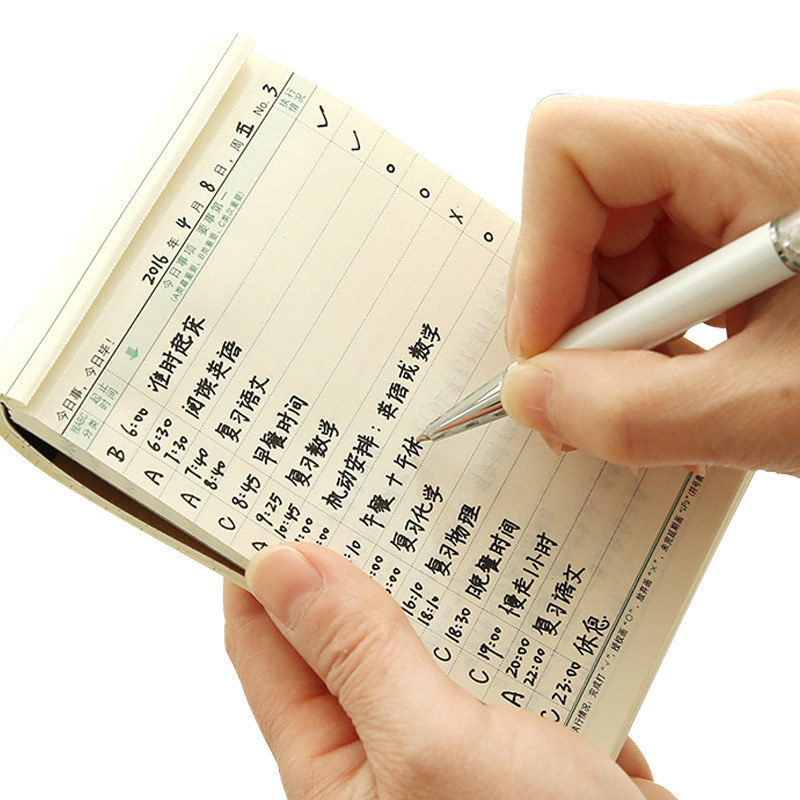 今日事，今日毕！ 2016 年 4 月 8 日，周五 No. 3
分类 起止时间 今日事项 要事第一 执行情况
(A类最重要，B类重要，C类次重要)
B 6:00 准时起床 ✓
A 6:30 7:30 阅读英语 ✓
A 7:40 8:40 复习语文 o
C 8:45 早餐时间 o
A 9:25 10:45 复习数学 x
:00 机动安排：英语或数学 o
:10 午餐+午休
:00 复习化学
16:10 18:10 复习物理
C 18:30 晚餐时间
C 19:00 慢走1小时
A 20:00 22:00 复习语文
C 23:00 休息
执行情况：完成打“√”，授权画“O”，放弃画“×”，未完延期画